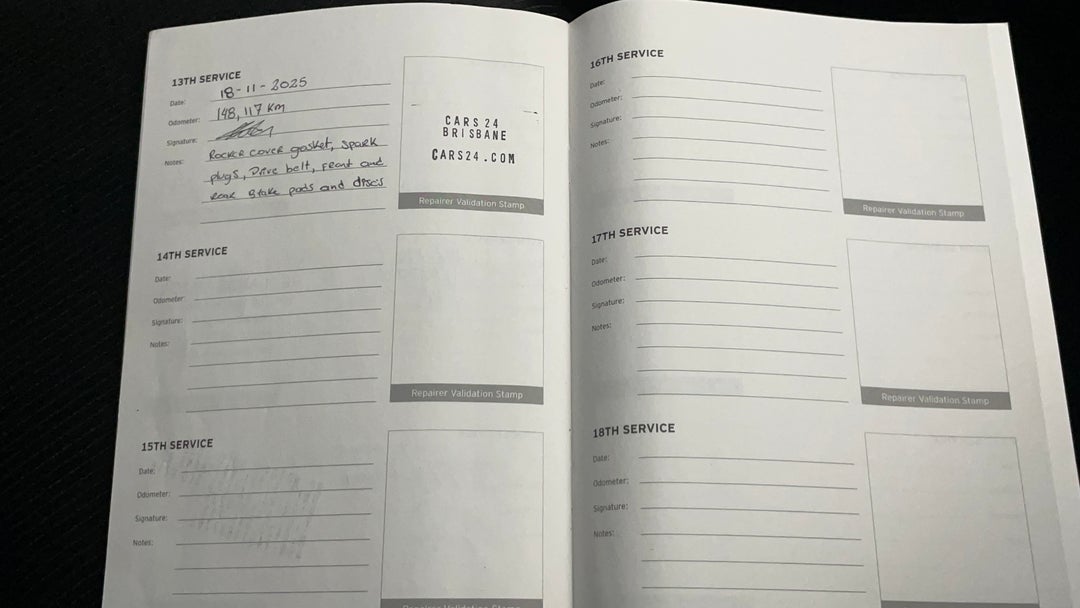 13TH SERVICE
Date: 18-11-2025
Odometer: 148,117 Km
Signature:
Notes: Rocker cover gasket, spark
plugs, Drive belt, Front and
rear Brake pads and discs
CARS 24
BRISBANE
CARS24.COM
Repairer Validation Stamp
14TH SERVICE
Date:
Odometer:
Signature:
Notes:
Repairer Validation Stamp
15TH SERVICE
Date:
Odometer:
Signature:
Notes:
Repairer Validation Stamp
16TH SERVICE
Date:
Odometer:
Signature:
Notes:
Repairer Validation Stamp
17TH SERVICE
Date:
Odometer:
Signature:
Notes:
Repairer Validation Stamp
18TH SERVICE
Date:
Odometer:
Signature:
Notes: